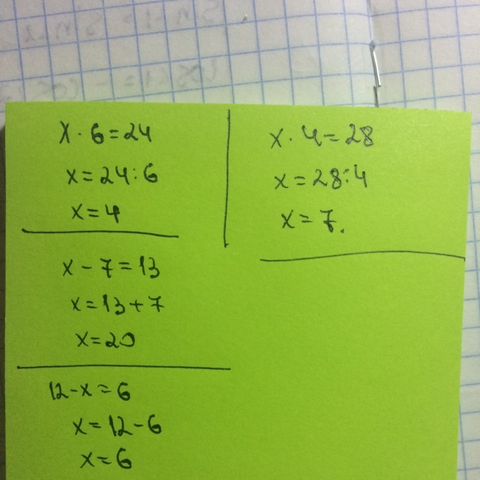 x · 6 = 24
x = 24 : 6
x = 4
x - 7 = 13
x = 13 + 7
x = 20
12 - x = 6
x = 12 - 6
x = 6
x · 4 = 28
x = 28 : 4
x = 7.